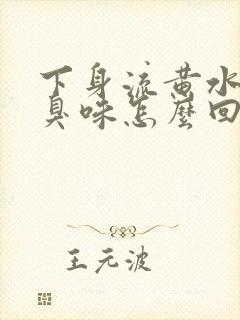 下身流黄水
臭味怎麼回
王元波